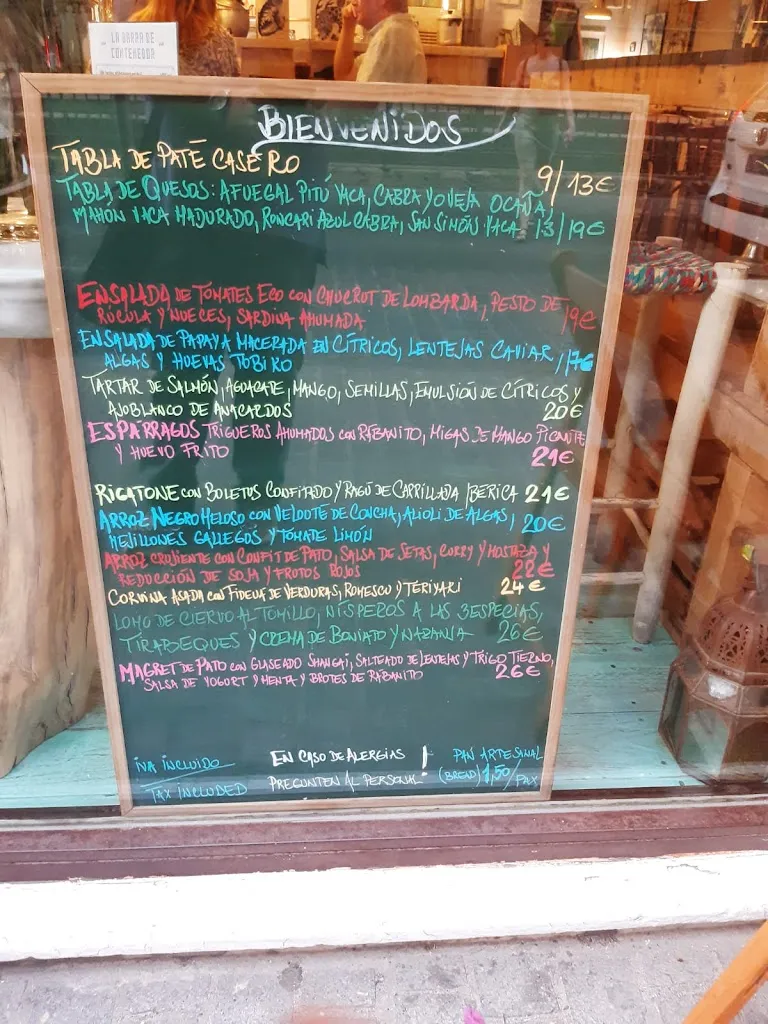 LA BARRA DE
CONTENEDOR
BIENVENIDOS
TABLA DE PATÉ CASERO 9/13€
TABLA DE QUESOS: AFUEGAL PITÚ VACA, CABRA Y OVEJA OCAÑA,
MAHÓN VACA MADURADO, RONCARI AZUL CABRA, SAN SIMÓN VACA 13/19€
ENSALADA DE TOMATES ECO CON CHUCRUT DE LOMBARDA, PESTO DE
RÚCULA Y NUECES, SARDINA AHUMADA 19€
ENSALADA DE PAPAYA MACERADA EN CÍTRICOS, LENTEJAS CAVIAR,
ALGAS Y HUEVAS TOBIRO 17€
TARTAR DE SALMÓN, AGUACATE, MANGO, SEMILLAS, EMULSIÓN DE CÍTRICOS Y
AJOBLANCO DE ANACARDOS 20€
ESPÁRRAGOS TRIGUEROS AHUMADOS CON RABANITO, MIGAS DE MANGO PICANTE
Y HUEVO FRITO 21€
RIGATONE CON BOLETUS CONFITADO Y RAGÚ DE CARRILLADA IBÉRICA 21€
ARROZ NEGRO MELOSO CON VELOUTE DE CONCHA, ALIOLI DE ALGAS,
MEJILLONES GALLEGOS Y TOMATE LIMÓN 20€
ARROZ CRUJIENTE CON CONFIT DE PATO, SALSA DE SETAS, CURRY Y MOSTAZA Y
REDUCCIÓN DE SOJA Y FRUTOS ROJOS 22€
CORVINA ASADA CON FIDEUÁ DE VERDURAS, ROMESCU Y TERIYAKI 24€
LOMO DE CIERVO AL TOMILLO, NÍSPEROS A LAS 3 ESPECIAS,
TIRABEQUES Y CREMA DE BONIATO Y NARANJA 26€
MAGRET DE PATO CON GLASEADO SHANGAI, SALTEADO DE LENTEJAS Y TRIGO TIERNO,
SALSA DE YOGURT Y MENTA Y BROTES DE RABANITO 26€
IVA INCLUIDO
TAX INCLUDED
EN CASO DE ALERGIAS
PREGUNTEN AL PERSONAL!
PAN ARTESANAL
(BREAD) 1,50/PAX